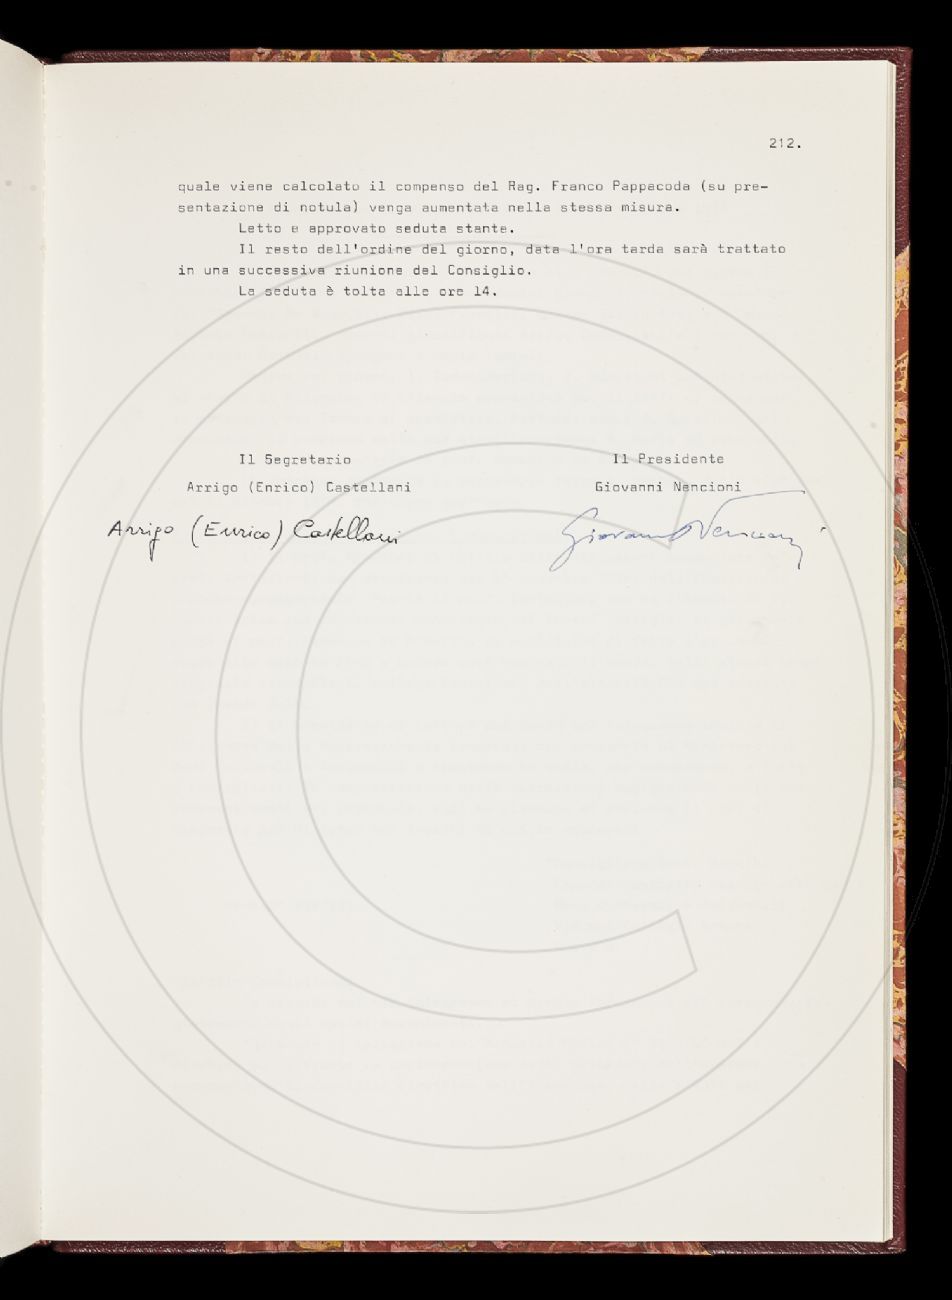 212.
quale viene calcolato il compenso del Rag. Franco Pappacoda (su pre-
sentazione di notula) venga aumentata nella stessa misura.
Letto e approvato seduta stante.
Il resto dell'ordine del giorno, data l'ora tarda sarà trattato
in una successiva riunione del Consiglio.
La seduta è tolta alle ore 14.
Il Segretario
Arrigo (Enrico) Castellani
Arrigo (Enrico) Castellani
Il Presidente
Giovanni Nencioni
Giovanni Nencioni